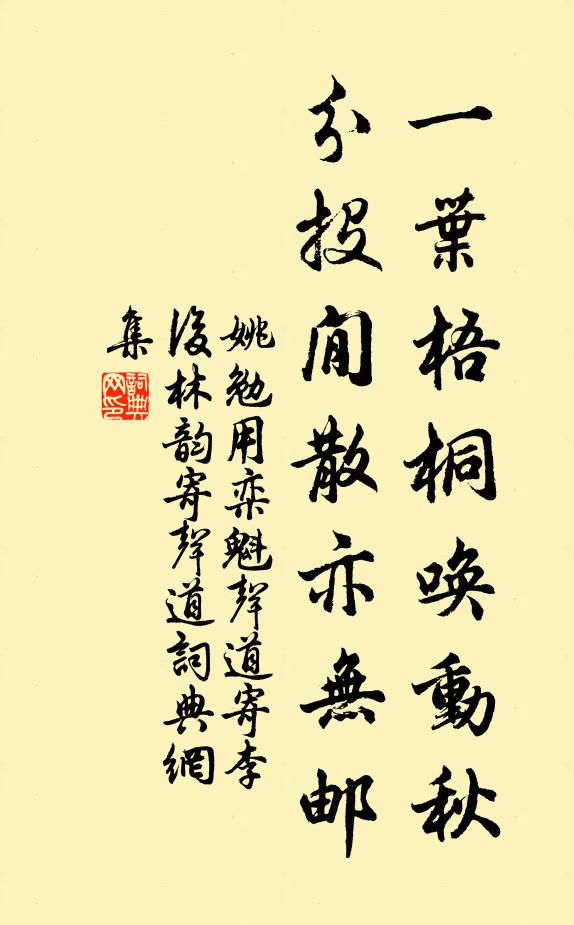 一葉梧桐喚動秋
分投閒散亦無邮
姚勉用奕魁聲道寄李
後林韵寄聲道詞典網
集
詞典网印